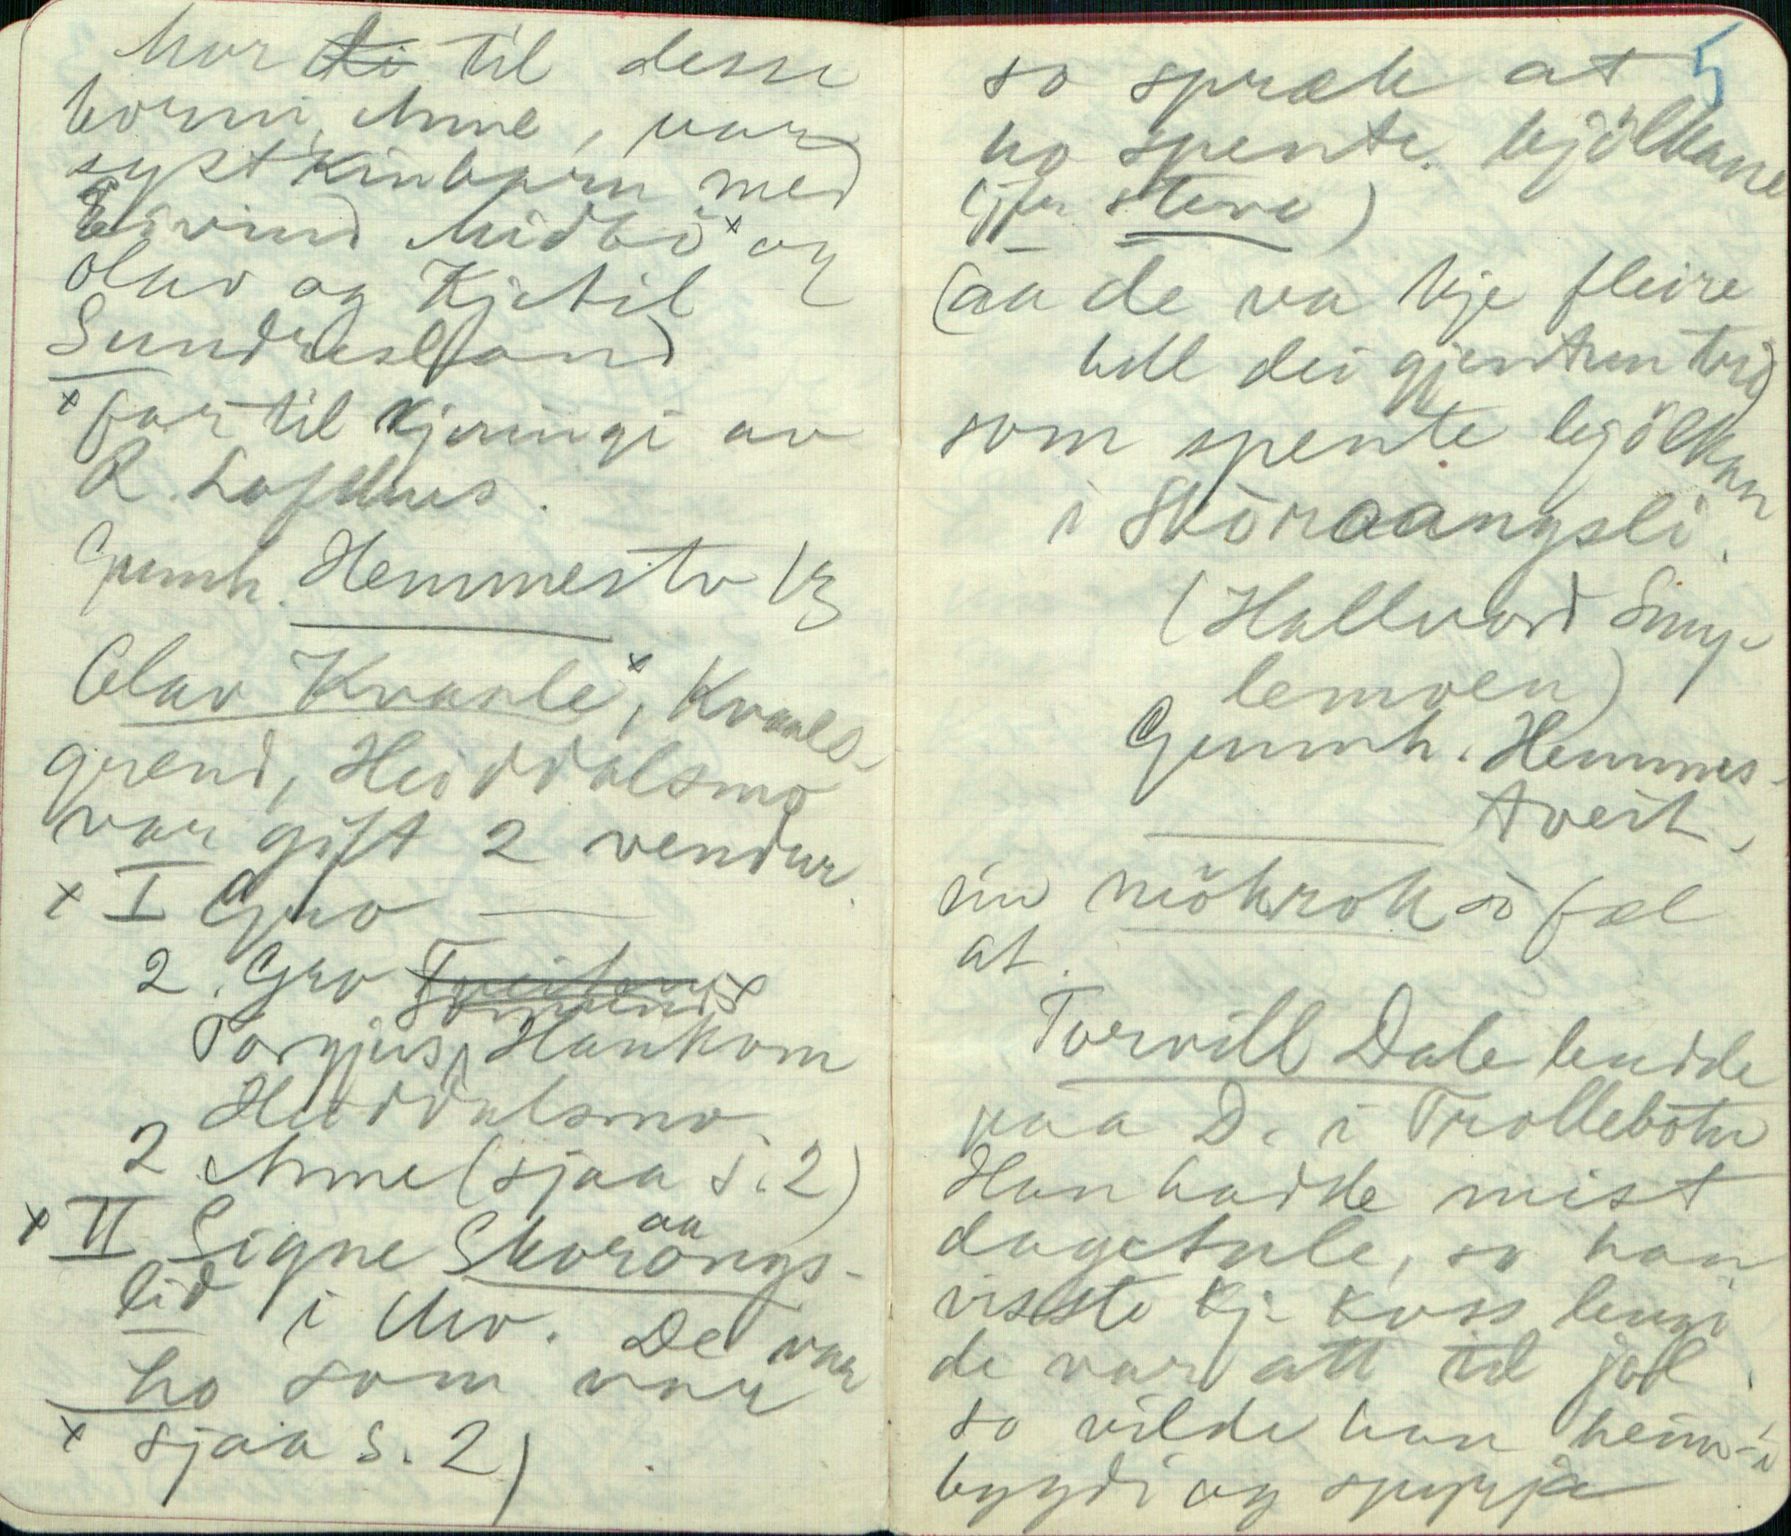 Mor til desse
borni, Anne, var
systkinbarn med
Eivind Midbö x og
Olav og Kjetil
Sundresland
x far til kjeringi av
R. Lofthus.
Gunnh. Hemmestv
Olav Kvaale x, Kvaales-
grend, Heiddalsmo
var gift 2 vendur.
x I Gro —
2. Gro
Torgjus Haukom
Heiddalsmo.
2 Anne (sjaa s. 2)
x II Signe Skoraangs-
lid i Mo. De var
ho som var
x sjaa s. 2)
5
so spræk at
ho spente bjölkane
(jfr steve)
(aa de va kje fleire
hell dei gjentun tri)
som spente bjölkan
i Sköraangsli.
(Hallvord Smyge-
lemoen)
Gunnh. Hemmes-
tveit.
ein mökrok so fæl
at.
Torvill Dale budde
paa D. i Trollebotn
Han hadde mist
dagetale, so han
visste kje koss lengi
de var att til jol
so vilde han heim i
bygdi og spyrja